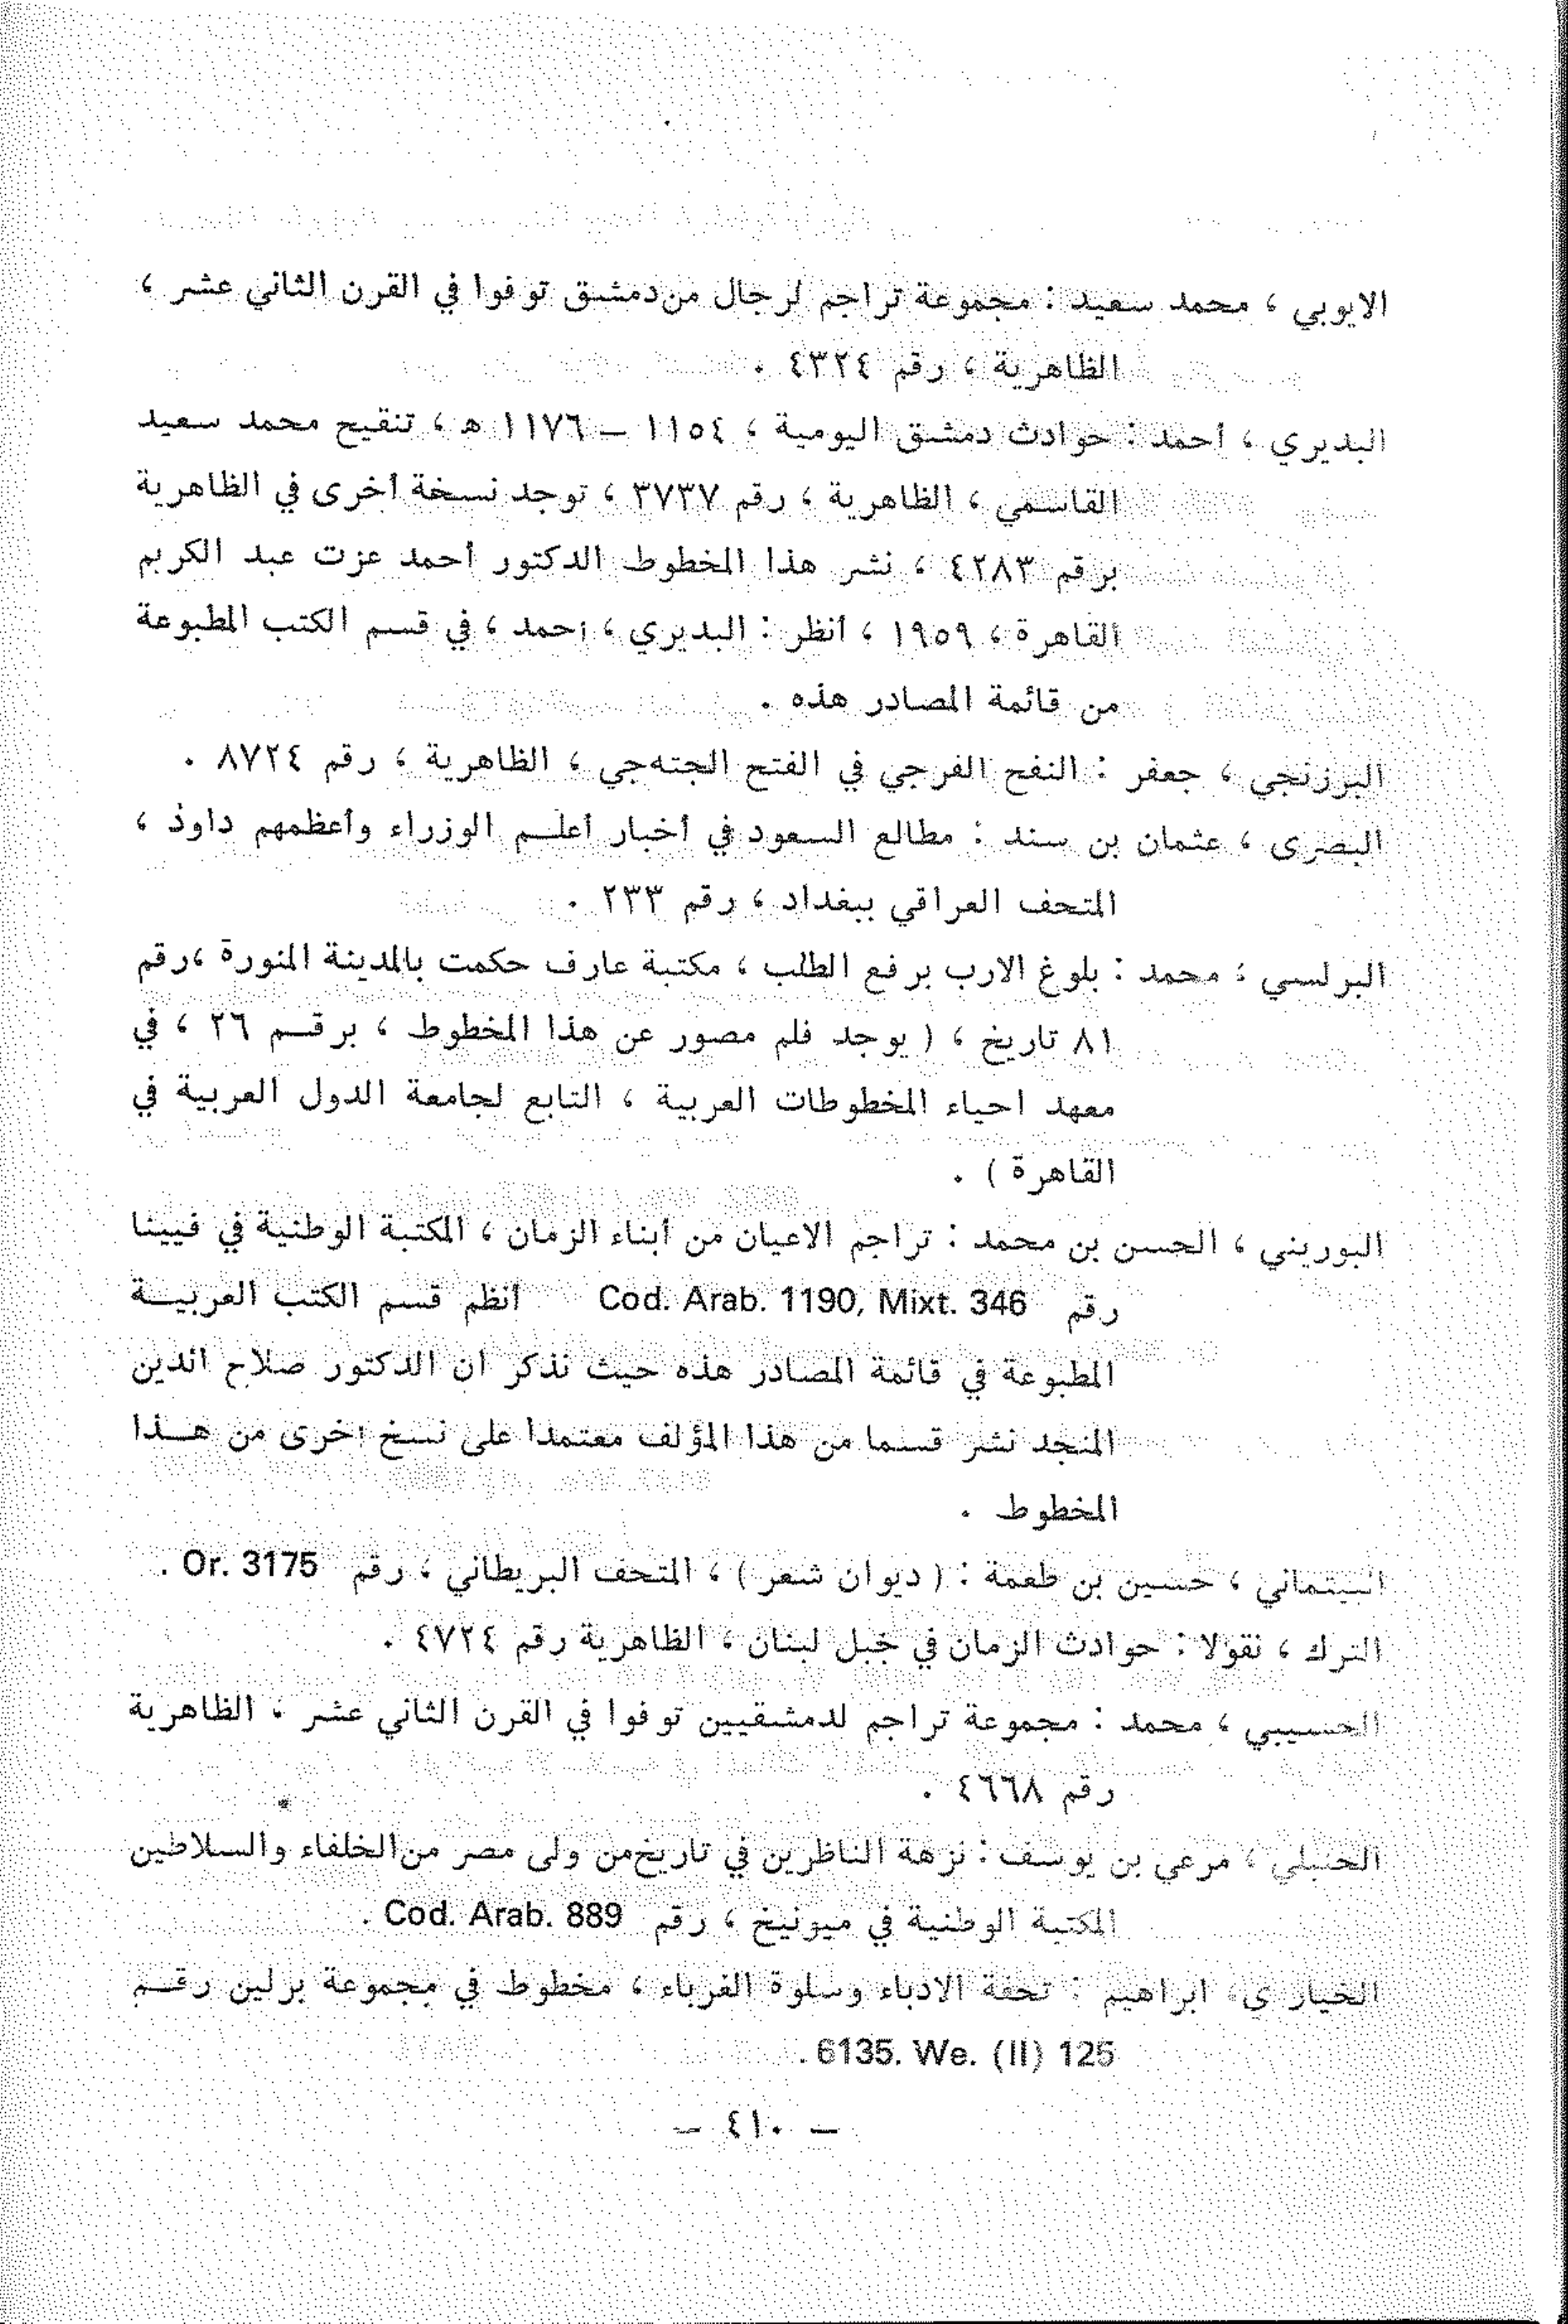 الايوبي ، محمد سعيد : مجموعة تراجم لرجال من دمشق توفوا في القرن الثاني عشر ،
الظاهرية ، رقم ٤٣٢٤ .
البديري ، أحمد : حوادث دمشق اليومية ، ١١٥٤ – ١١٧٦ ه ، تنقيح محمد سعيد
القاسمي ، الظاهرية ، رقم ٣٧٣٧ ، توجد نسخة أخرى في الظاهرية
برقم ٤٢٨٣ ، نشر هذا المخطوط الدكتور أحمد عزت عبد الكريم
القاهرة ، ١٩٥٩ ، أنظر : البديري ، أحمد ، في قسم الكتب المطبوعة
من قائمة المصادر هذه .
البرزنجي ، جعفر : النفح الفرجي في الفتح الجته‌جي ، الظاهرية ، رقم ٨٧٢٤ .
البصرى ، عثمان بن سند : مطالع السعود في أخبار أعلــم الوزراء وأعظمهم داوذ ،
المتحف العراقي ببغداد ، رقم ٢٣٣ .
البرلسي ، محمد : بلوغ الارب برفع الطلب ، مكتبة عارف حكمت بالمدينة المنورة ،رقم
٨١ تاريخ ، ( يوجد فلم مصور عن هذا المخطوط ، برقــم ٢٦ ، في
معهد احياء المخطوطات العربية ، التابع لجامعة الدول العربية في
القاهرة ) .
البوريني ، الحسن بن محمد : تراجم الاعيان من أبناء الزمان ، المكتبة الوطنية في فيينا
رقم Cod. Arab. 1190, Mixt. 346 أنظم قسم الكتب العربيــة
المطبوعة في قائمة المصادر هذه حيث نذكر ان الدكتور صلاح الدين
المنجد نشر قسما من هذا المؤلف معتمدا على نسخ اخرى من هــذا
المخطوط .
البيتماني ، حسين بن طعمة : ( ديوان شعر ) ، المتحف البريطاني ، رقم Or. 3175 .
الترك ، نقولا : حوادث الزمان في جبل لبنان ، الظاهرية رقم ٤٧٢٤ .
الحسيبي ، محمد : مجموعة تراجم لدمشقيين توفوا في القرن الثاني عشر ، الظاهرية
رقم ٤٦٦٨ .
الحنبلي ، مرعي بن يوسف : نزهة الناظرين في تاريخ من ولى مصر من الخلفاء والسلاطين
المكتبة الوطنية في ميونيخ ، رقم Cod. Arab. 889 .
الخياري، ابراهيم : تحفة الادباء وسلوة الغرباء ، مخطوط في مجموعة برلين رقــم
6135. We. (II) 125 .
– ٤١٠ –